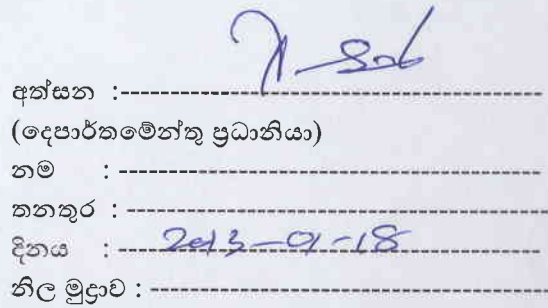 අත්සන :--------------------
(දෙපාර්තමේන්තු ප්‍රධානියා)
නම : --------------------
තනතුර : --------------------
දිනය : 2013-01-18
නිල මුද්‍රාව : --------------------